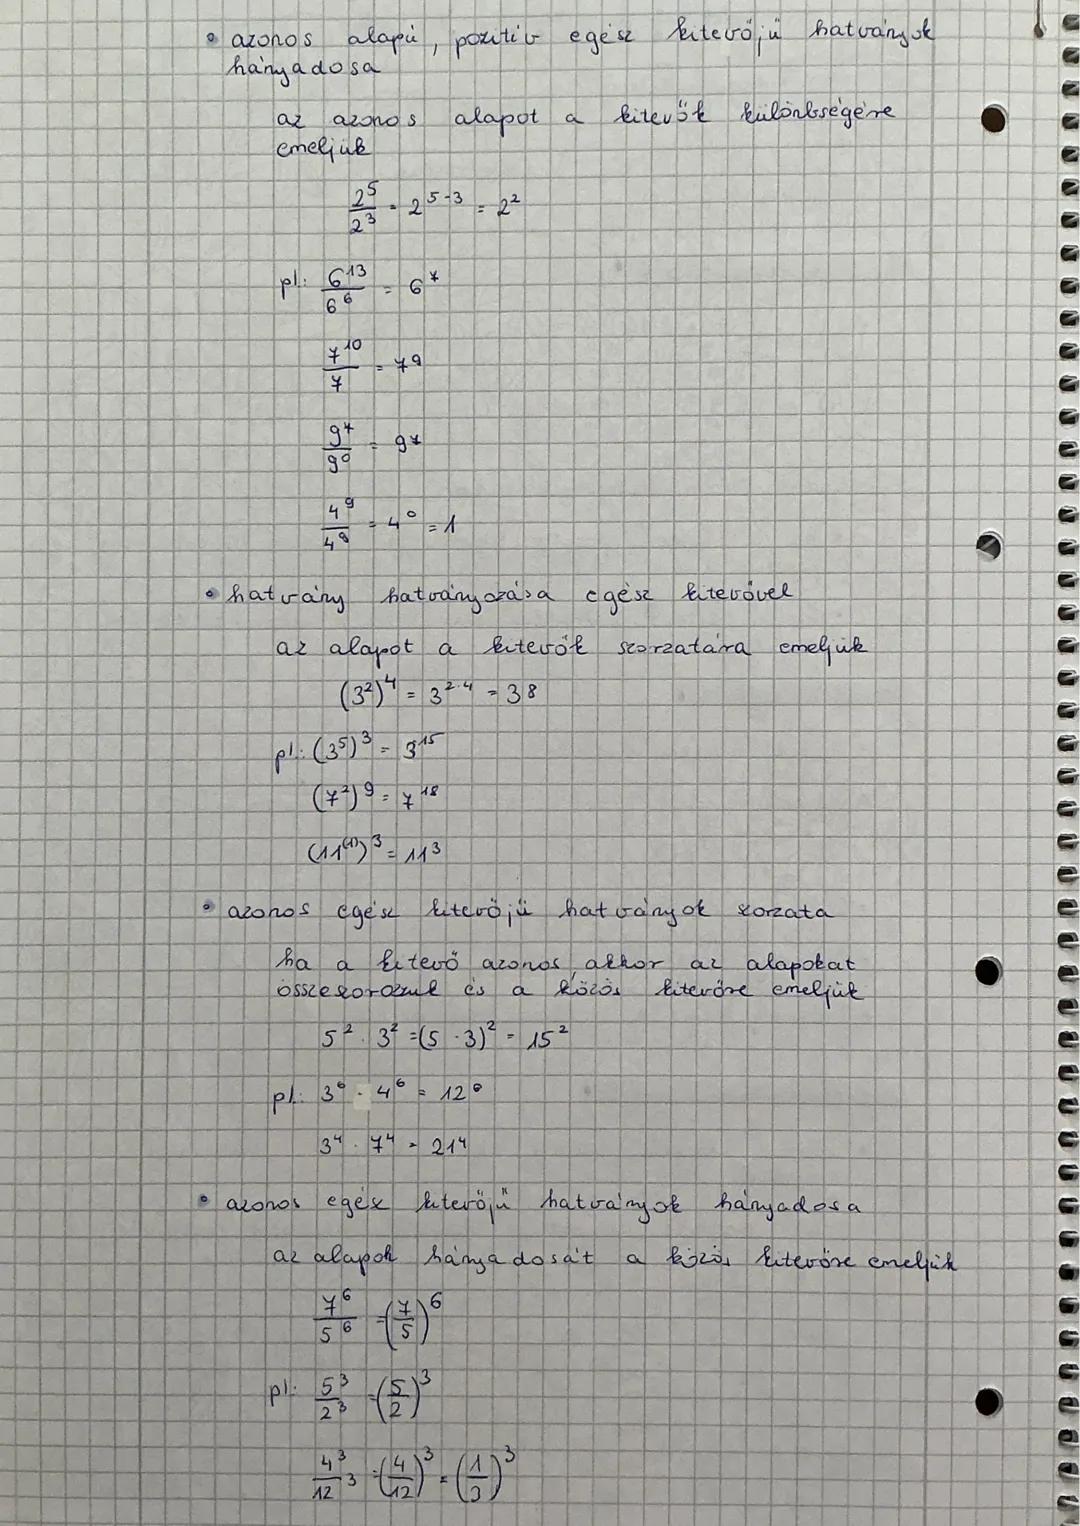 • azonos alapú, pozitív egész kitevőjű hatványok
hányadosa
az azonos alapot a kitevők különbségére
emeljük
2⁵/2³ = 2⁵⁻³ = 2²
pl.: 6¹³/6⁶ = 6⁷
7¹⁰/7 = 7⁹
9⁷/9⁰ = 9⁷
4⁹/4⁹ = 4⁰ = 1
• hatvány hatványozása egész kitevővel
az alapot a kitevők szorzatára emeljük
(3²)⁴ = 3²·⁴ = 3⁸
pl.: (3⁵)³ = 3¹⁵
(7²)⁹ = 7¹⁸
(11⁽¹⁾)³ = 11³
• azonos egész kitevőjű hatványok szorzata
ha a kitevő azonos, akkor az alapokat
összeszorozzuk és a közös kitevőre emeljük
5² · 3² = (5 · 3)² = 15²
pl.: 3⁶ · 4⁶ = 12⁶
3⁴ · 7⁴ = 21⁴
• azonos egész kitevőjű hatványok hányadosa
az alapok hányadosát a közös kitevőre emeljük
7⁶/5⁶ = (7/5)⁶
pl.: 5³/2³ = (5/2)³
4³/12³ = (4/12)³ = (1/3)³